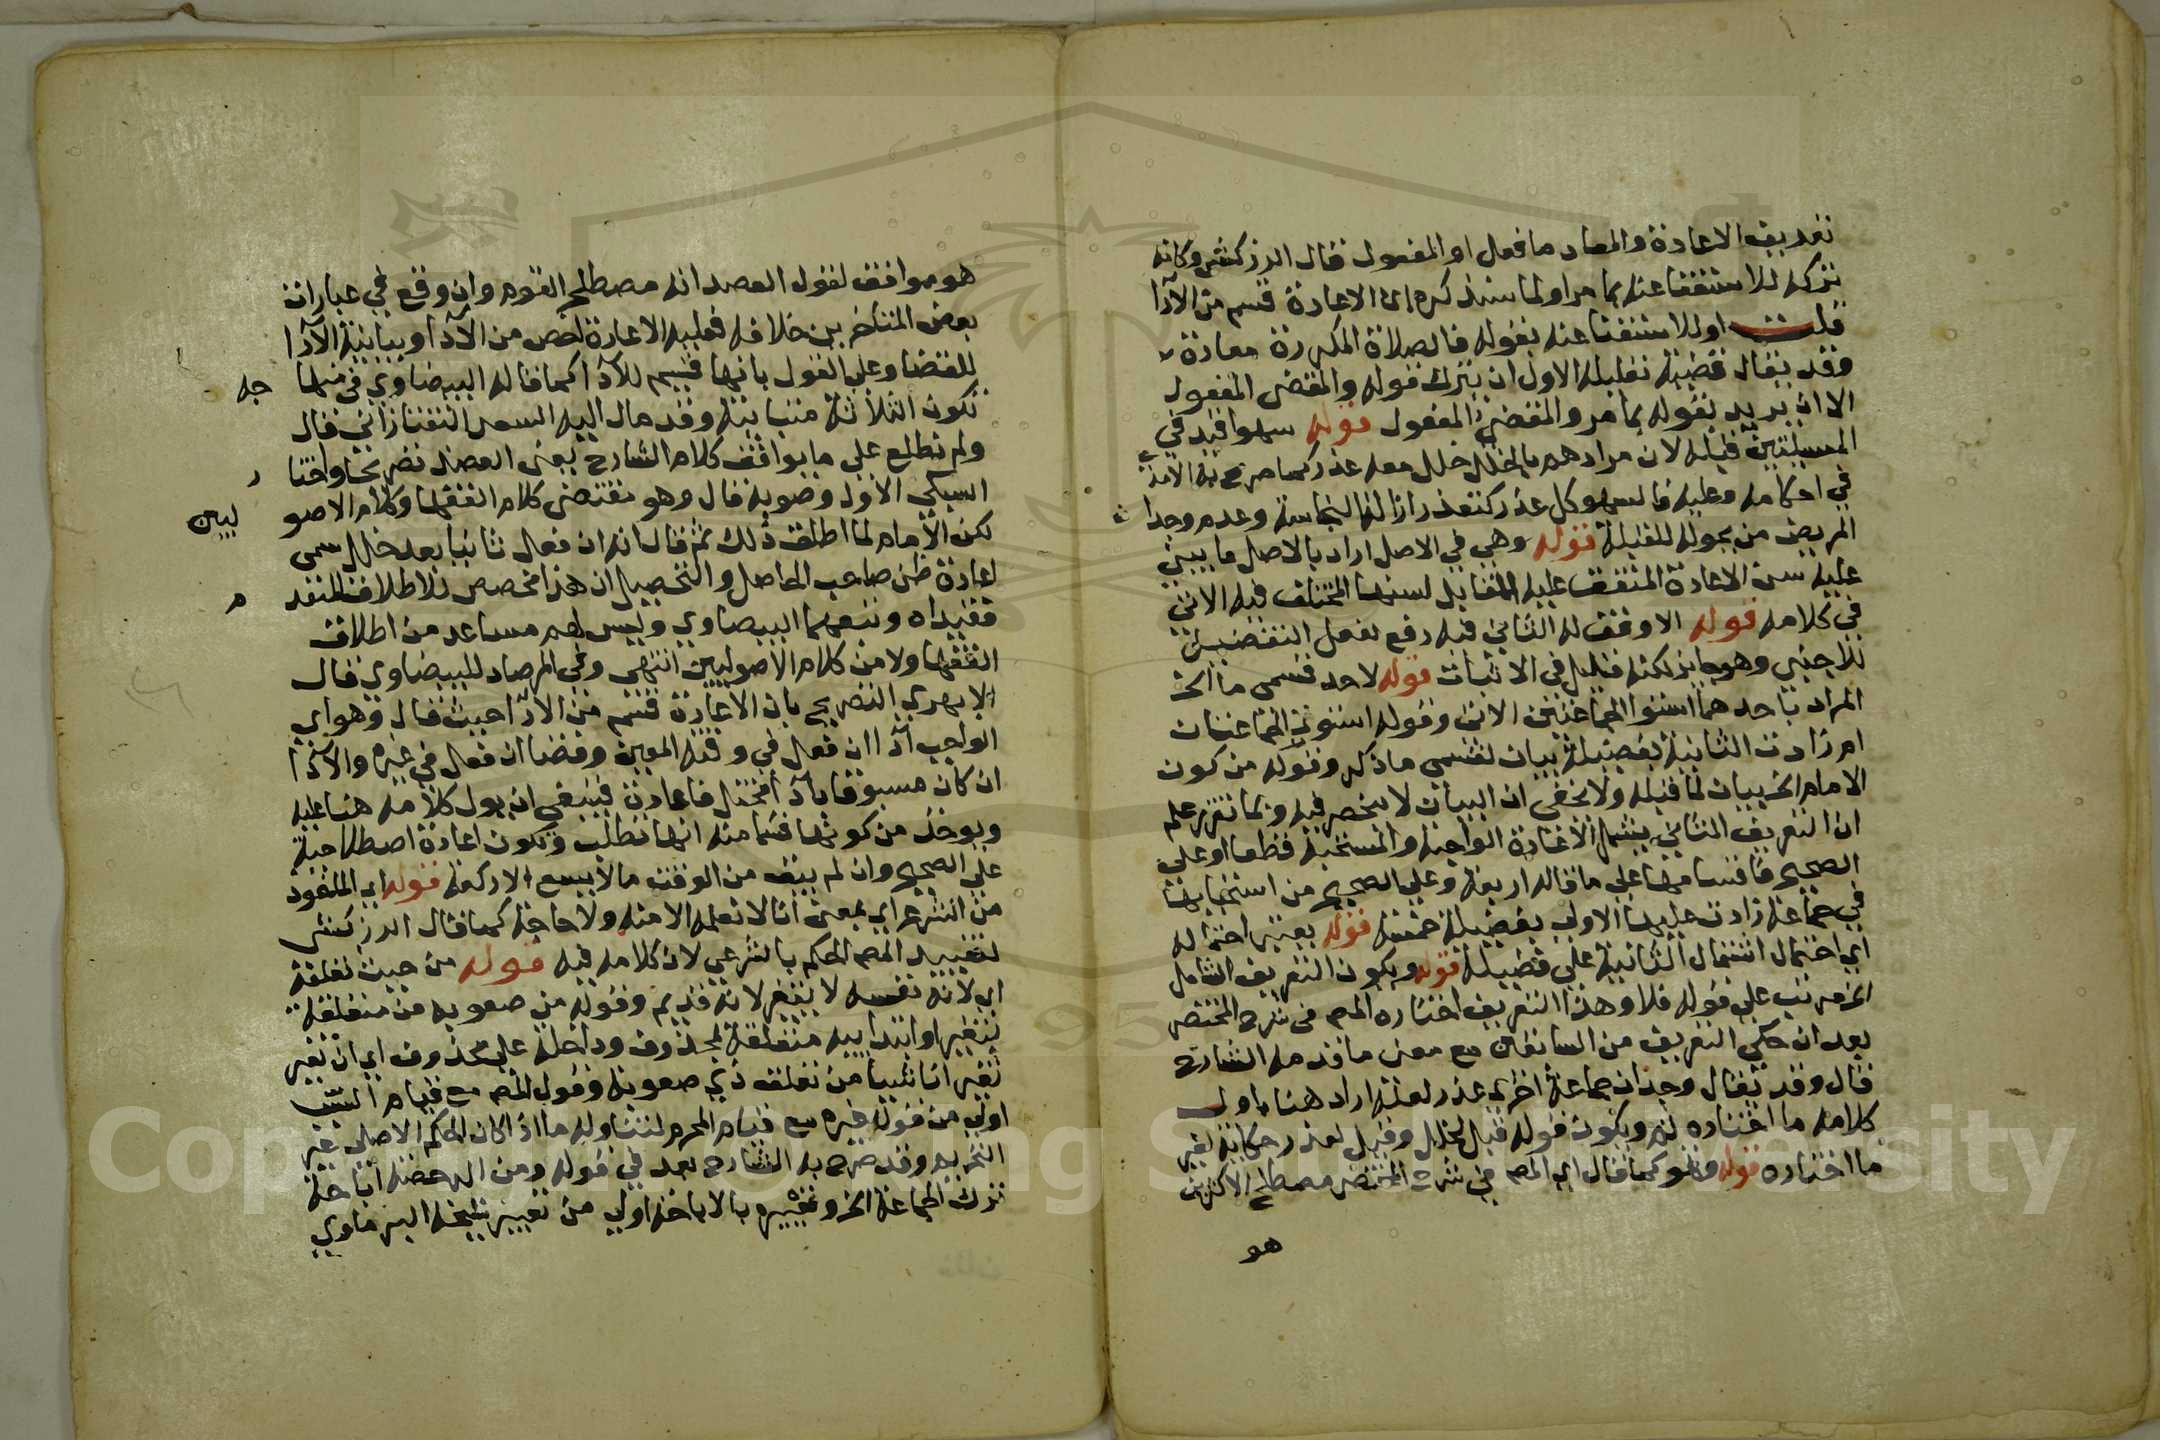 تعريف الاعادة والمعاد ما فعل او المفعول قال الزركشي وكانه
تركه للاستغنا عنه بما مر او لما سنذكره ان الاعادة قسم من الآدا
قلت او للاستغنا عنه بقوله فالصلاة المكررة معادة
وقد يقال قضية تعليله الاول ان يترك قوله والمقضي المفعول
الا ان يريد بقوله بما مر والمقضي المفعول قوله سهوا قيد في
المسيلتين قبله لان مرادهم بالخلل خلل معه عذر كما صرح به الامدي
في احكامه وعليه فالسهو كل عذر كتعذر ازالة النجاسة وعدم وجدا
المريض من يحوله للقبلة قوله وهي في الاصل اراد بالاصل ما يبني
عليه سن الاعادة المتفق عليه المقابل لسنها المختلف فيه الاتي
في كلامه قوله الاوفق له الثاني فيه رفع افعل التفضيل
للاجنبي وهو جايز لكنه قليل في الاثبات قوله لاحد قسمي ما الخ
المراد باحدهما استوا الجماعتين الاتي وقوله استوت الجماعتان
ام زادت الثانية بفضيلة بيان لقسمي ما ذكر وقوله من كون
الامام الخ بيان لما قبله ولا يخفى ان البيان لا ينحصر فيه وبما تقرر علم
ان التعريف الثاني يشمل الاعادة الواجبة والمستحبة قطعا او على
الصحيح فاقسامها على ما قاله اربعة وعلى الصحيح من استحبابها
في جماعة زادت عليها الاولى بفضيلة خمسة قوله يعتبر احتماله
اي احتمال اشتمال الثانية على فضيلة قوله ويكون التعريف الشامل
الخ مرتب على قوله فلا وهذا التعريف اختاره المص في شرح المختصر
بعد ان حكى التعريف من السابقين مع معنى ما قدمه الشارح
قال وقد يقال وجدان جماعة اخرى عذر لعله اراد هنا باول
كلامه ما اختاره ثم ويكون قوله قيل لخلل وقيل لعذر حكاية لغير
ما اختاره قوله وهو كما قال اي المص في شرح المختصر مصطلح الاكثرين
هو
هو موافق لقول العضد انه مصطلح القوم وان وقع في عبارات
بعض المتاخرين خلافه فعليه الاعادة اخص من الآدا ومباينة الآدا
للقضا وعلى القول بانها قسيم للآدا كما قاله البيضاوي في منهاجه
تكون الثلاثة متباينة وقد مال اليه السعد التفتازاني قال
ولم نطلع على ما يوافق كلام الشارح يعني العضد نصريحا واختار
السبكي الاول وصوبه قال وهو مقتضى كلام الفقها وكلام الاصوليين
لكن الامام لما اطلق ذلك ثم قال انه ان فعل ثانيا بعد خلل سمي
اعادة ظن صاحب الحاصل والتحصيل ان هذا مخصص للاطلاق المتقدم
فقيداه وتبعهما البيضاوي وليس لهم مساعد من اطلاق
الفقها ولا من كلام الاصوليين انتهى وفي المرصاد للبيضاوي قال
الابهري التصريح بان الاعادة قسم من الادآ حيث قال وهو اي
الواجب آدا ان فعل في وقته المعين وقضا ان فعل في غيره والآدا
ان كان مسبوقا بآدا مختل فاعادة فينبغي ان يول كلامه هنا عليه
ويوخذ من كونها قسما منه انها تطلب وتكون اعادة اصطلاحية
على الصحيح وان لم يبق من الوقت ما لا يسع الا ركعة قوله اي الماخوذ
من الشرع اي بمعنى انا لا نعلمه الا منه ولا حاجة كما قال الزركشي
لتقييد المص الحكم بالشرعي لان كلامه فيه قوله من حيث تعلقه
اي لانه نفسه لا يتغير لانه قديم وقوله من صعوبة من متعلقة
بتغير او ابتدايية متعلقة بمحذوف وداخلة على محذوف اي ان تغير
تغيرا ناشيا من تعلق ذي صعوبة وقول المص مع قيام السبب
اولى من قوله غيره مع قيام المحرم لتناوله ما اذا كان الحكم الاصلي غير
التحريم وقد صرح به الشارح بعد في قوله ومن الرخصة اباحة
ترك الجماعة الخ وتعبيره بالاباحة اولى من تعبير شيخه البرماوي